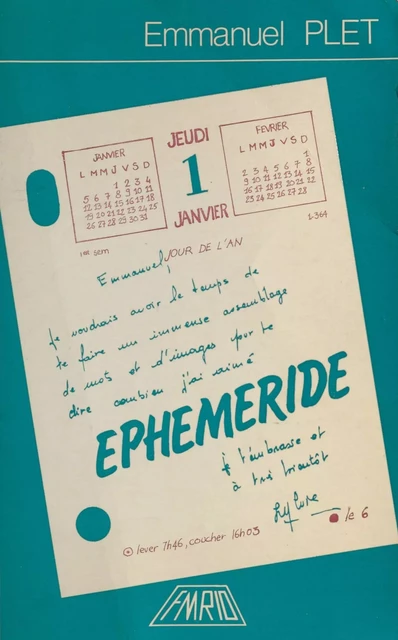 Emmanuel PLET
JANVIER
L M M J V S D
1 2 3 4
5 6 7 8 9 10 11
12 13 14 15 16 17 18
19 20 21 22 23 24 25
26 27 28 29 30 31
JEUDI
1
JANVIER
FEVRIER
L M M J V S D
1
2 3 4 5 6 7 8
9 10 11 12 13 14 15
16 17 18 19 20 21 22
23 24 25 26 27 28
1ère sem
1-364
JOUR DE L'AN
Emmanuel,
je voudrais avoir le temps de
te faire un immense assemblage
de mots et d'images pour te
dire combien j'ai aimé
EPHEMERIDE
je t'embrasse et
à très bientôt
le 6
lever 7h46, coucher 16h03
FMR10